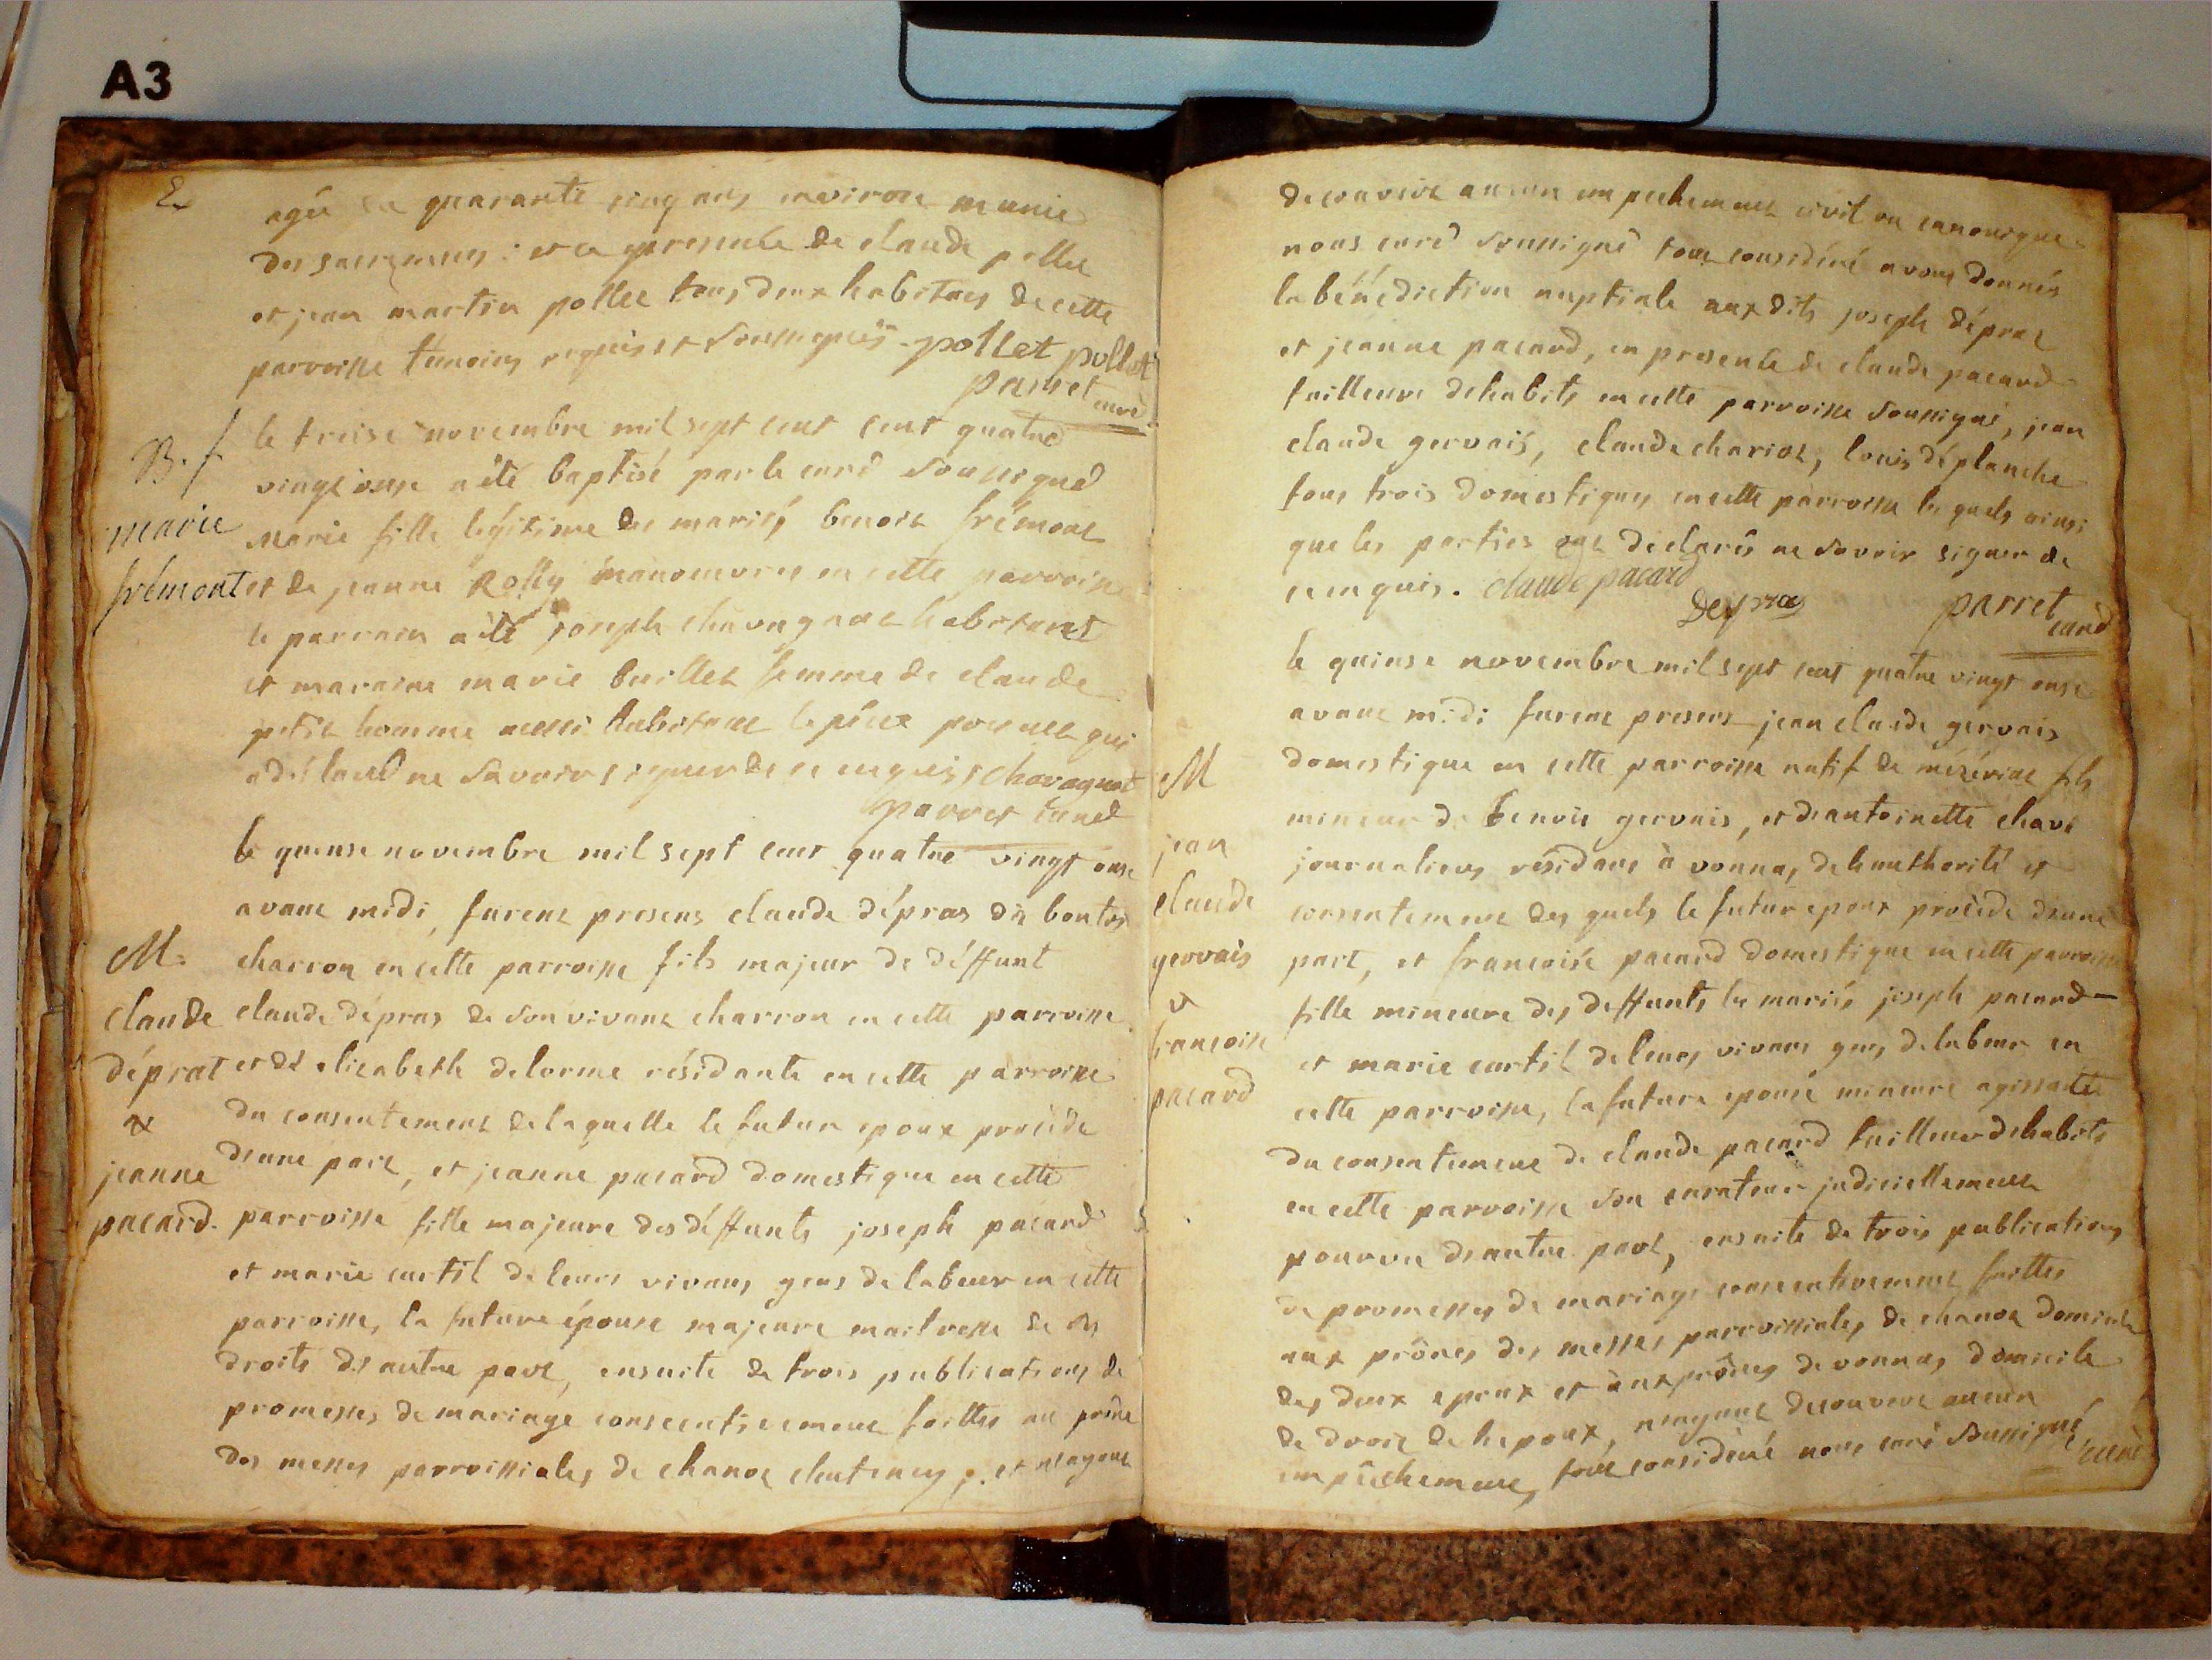 A3
agée de quarante cinq ans environ munie
des sacremens : et ce presence de claude pollet
et jean martin pollet tous deux habitans de cette
parroisse témoins requis et soussignés pollet pollet
parret curé
B. f.
marie
frémont
le treise novembre mil sept cent cent quatre
vingt onse a été baptisé par le curé soussigné
marie fille légitime des mariés benoit frémont
et de jeanne Rolly manoeuvres en cette parroisse
le parrain a été joseph chavagnat habitant
et maraine marie buillet femme de claude
petit homme aussi habitant qui
a déclaré ne savoir signer de ce enquis chavagnat
parret curé
M.
claude
déprat
&
jeanne
pacard.
le quinse novembre mil sept cent quatre vingt onse
avant midi, furent presens claude dépras dit bontos
charron en cette parroisse fils majeur de déffunt
claude dépras de son vivant charron en cette parroisse
et de elizabeth delorme résidante en cette parroisse
du consentement de laquelle le futur epoux procéde
d'une part, et jeanne pacard domestique en cette
parroisse fille majeure des déffunts joseph pacard
et marie curtil de leurs vivans gens de labeur en cette
parroisse, la future épouse majeure maitresse de ses
droits d'autre part, ensuite de trois publications de
promesses de mariage consecutivement faittes au prône
des messes parroissiales de chanoz chatenay, et n'ayant
decouvert aucun empechement civil ou canonique
nous curé soussigné tout considéré avons donnés
la bénédiction nuptiale auxdits joseph dépras
et jeanne pacard, en presence de claude pacard
tailleur d'habits en cette parroisse soussigné, jean
claude gervais, claude chariot, louis déplanche
tous trois domestiques en cette parroisse lesquels ainsi
que les parties ont déclarés ne savoir signer de
ce enquis. claude pacard
Depras parret curé
M
jean
claude
gervais
&
francoise
pacard
le quinse novembre mil sept cent quatre vingt onse
avant midi furent presens jean claude gervais
domestique en cette parroisse natif de mézériat fils
mineur de benoit gervais, et d'antoinette chave
journaliers résidans à vonnas, de l'authorité et
consentement des quels le futur epoux procéde d'une
part, et francoise pacard domestique en cette parroisse
fille mineure des deffunts les mariés joseph pacard
et marie curtil de leurs vivans gens de labeur en
cette parroisse, la future epouse mineure agissante
du consentement de claude pacard tailleur d'habits
en cette parroisse son curateur judiciellement
pourvu d'autre part, ensuite de trois publications
de promesses de mariage consecutivement faittes
aux prônes des messes parroissiales de chanoz domicile
des deux epoux et aux prônes de vonnas domicile
de droit de l'epoux, n'ayant decouvert aucun
empêchement, tout considéré nous curé soussigné